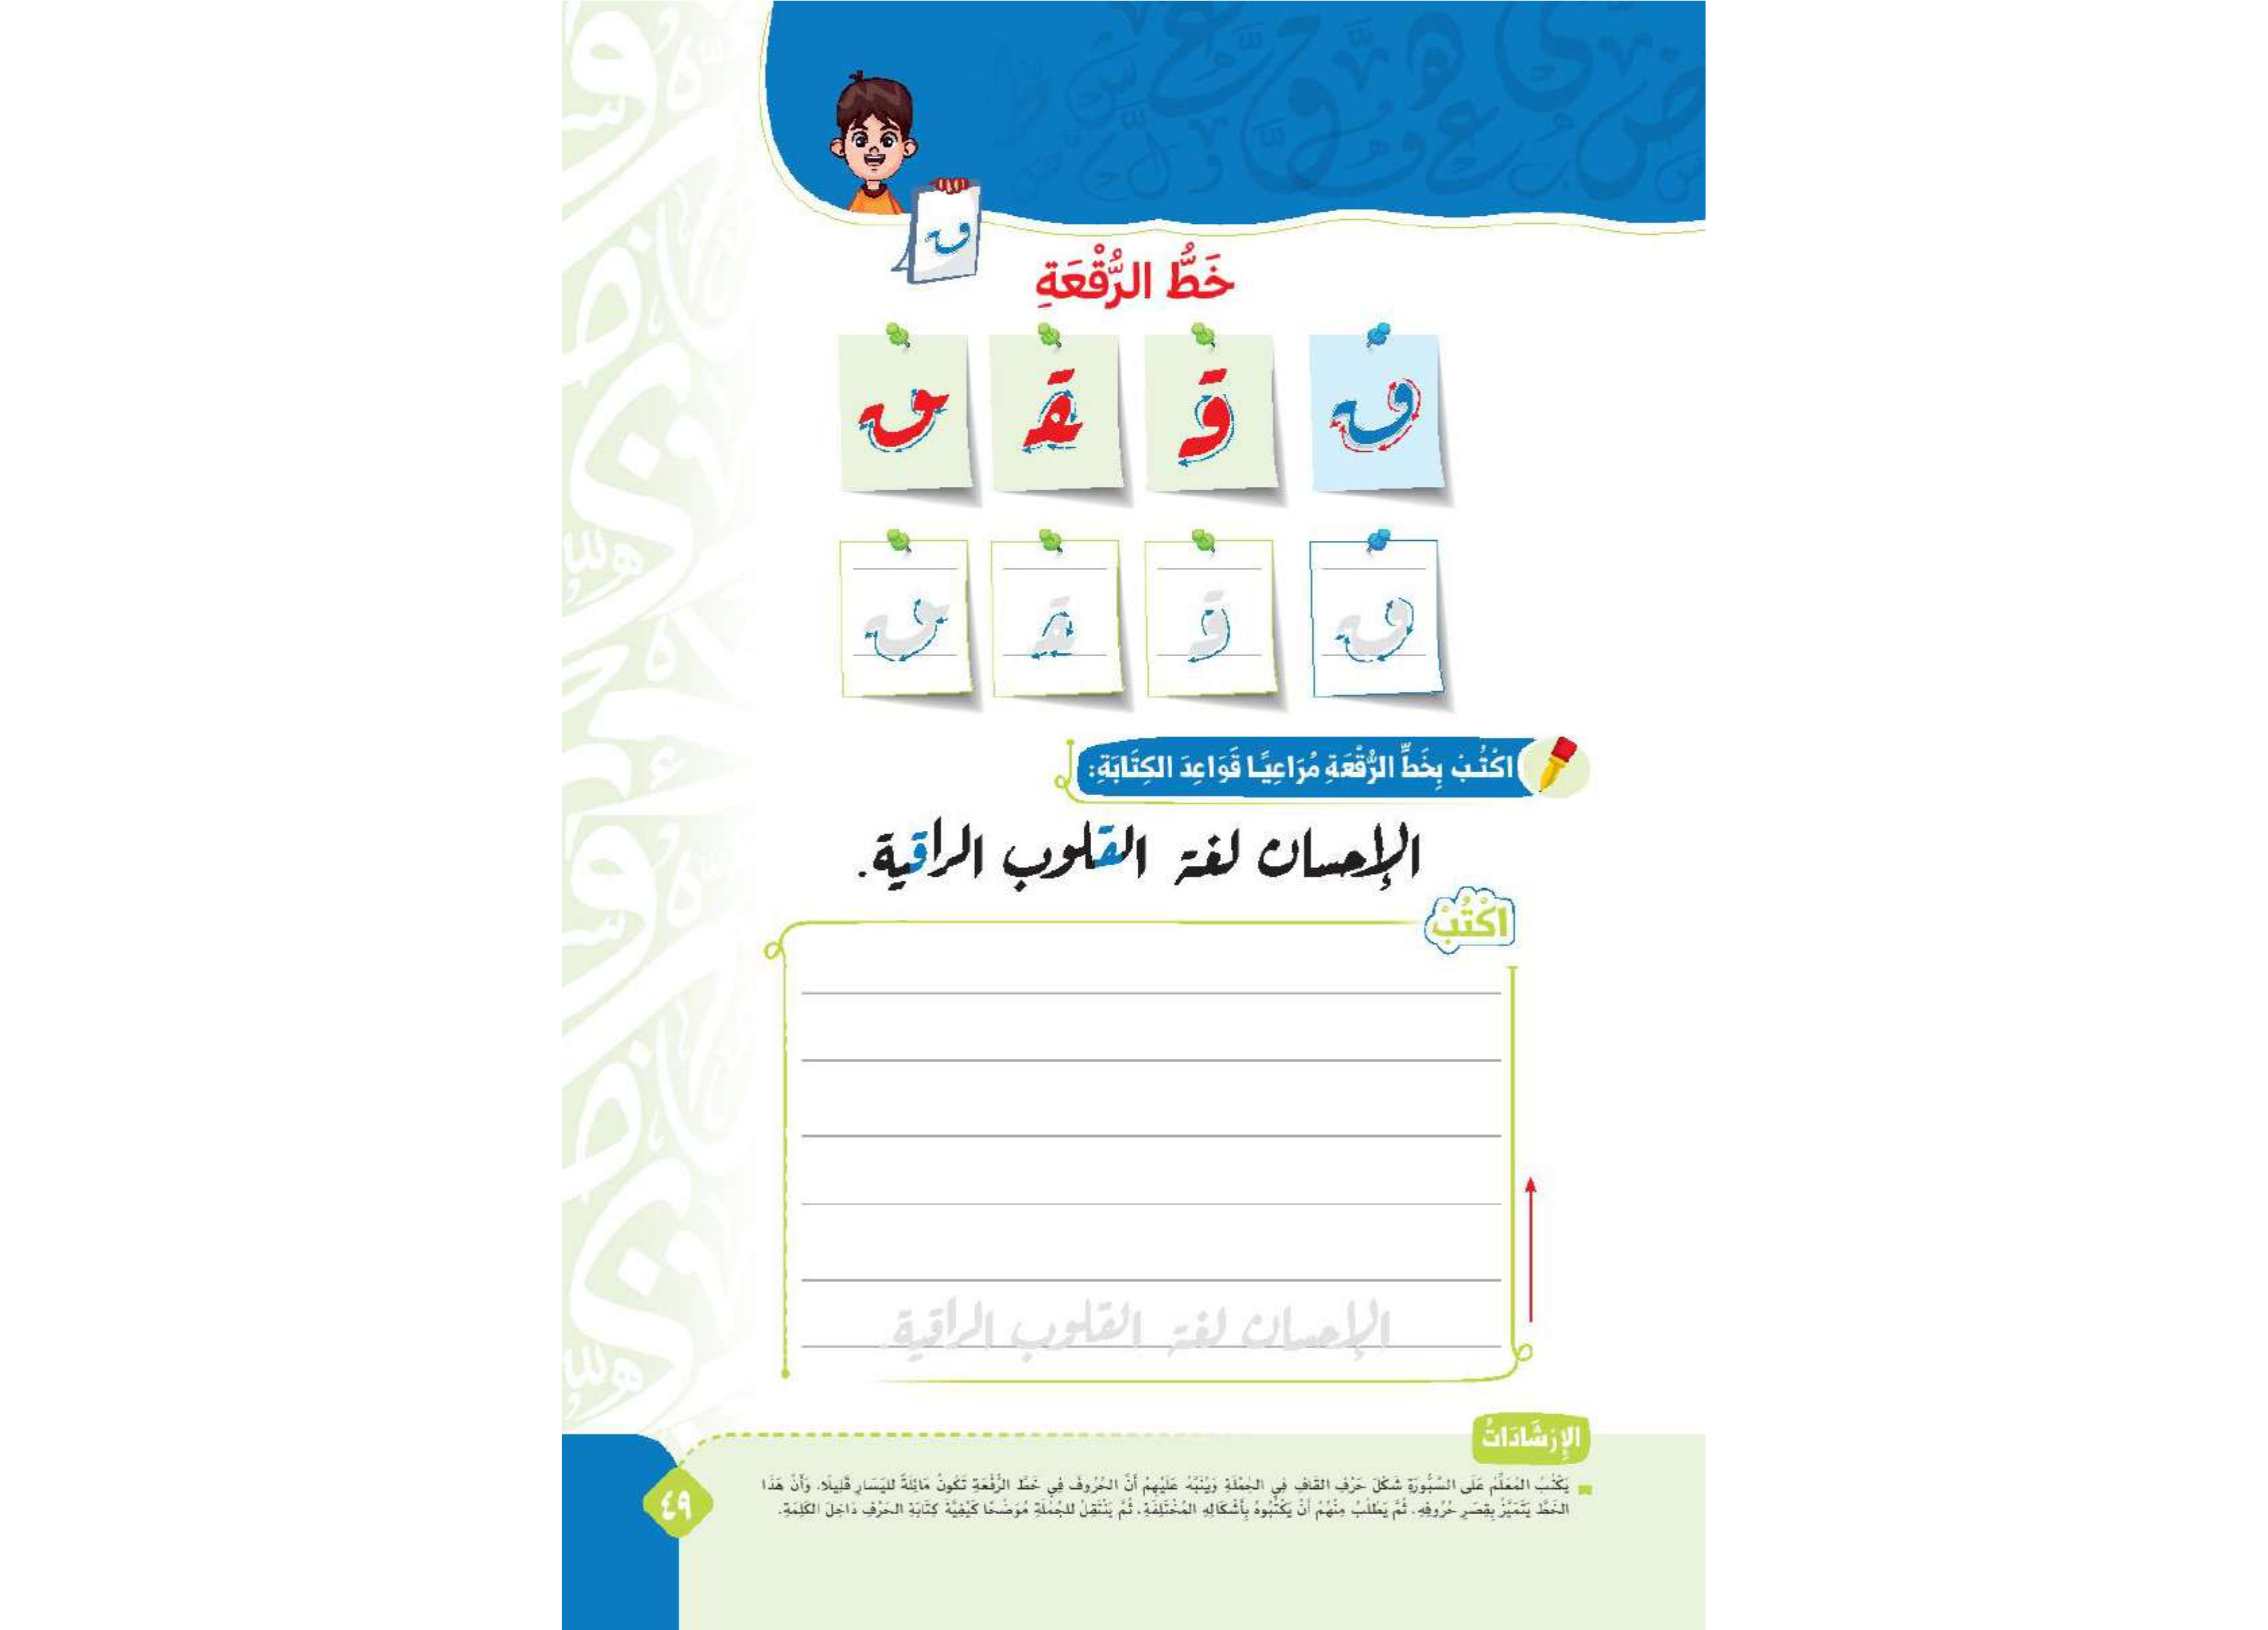 خَطُّ الرُّقْعَةِ
ق قـ ـقـ ـق
ق قـ ـقـ ـق
اكْتُبْ بِخَطِّ الرُّقْعَةِ مُرَاعِيًا قَوَاعِدَ الكِتَابَةِ:
الإحسان لغة القلوب الراقية.
اكْتُبْ
الإحسان لغة القلوب الراقية.
الإِرْشَادَاتُ
يَكْتُبُ المُعَلِّمُ عَلَى السَّبُّورَةِ شَكْلَ حَرْفِ القَافِ فِي الجُمْلَةِ وَيُنَبِّهُ عَلَيْهِمْ أَنَّ الحُرُوفَ فِي خَطِّ الرُّقْعَةِ تَكُونُ مَائِلَةً لليَسَارِ قَلِيلًا، وَأَنَّ هَذَا
الخَطَّ يَتَمَيَّزُ بِقِصَرِ حُرُوفِهِ، ثُمَّ يَطْلُبُ مِنْهُمْ أَنْ يَكْتُبُوهُ بِأَشْكَالِهِ المُخْتَلِفَةِ، ثُمَّ يَنْتَقِلُ للجُمْلَةِ مُوَضِّحًا كَيْفِيَّةَ كِتَابَةِ الحَرْفِ دَاخِلَ الكَلِمَةِ.
٤٩